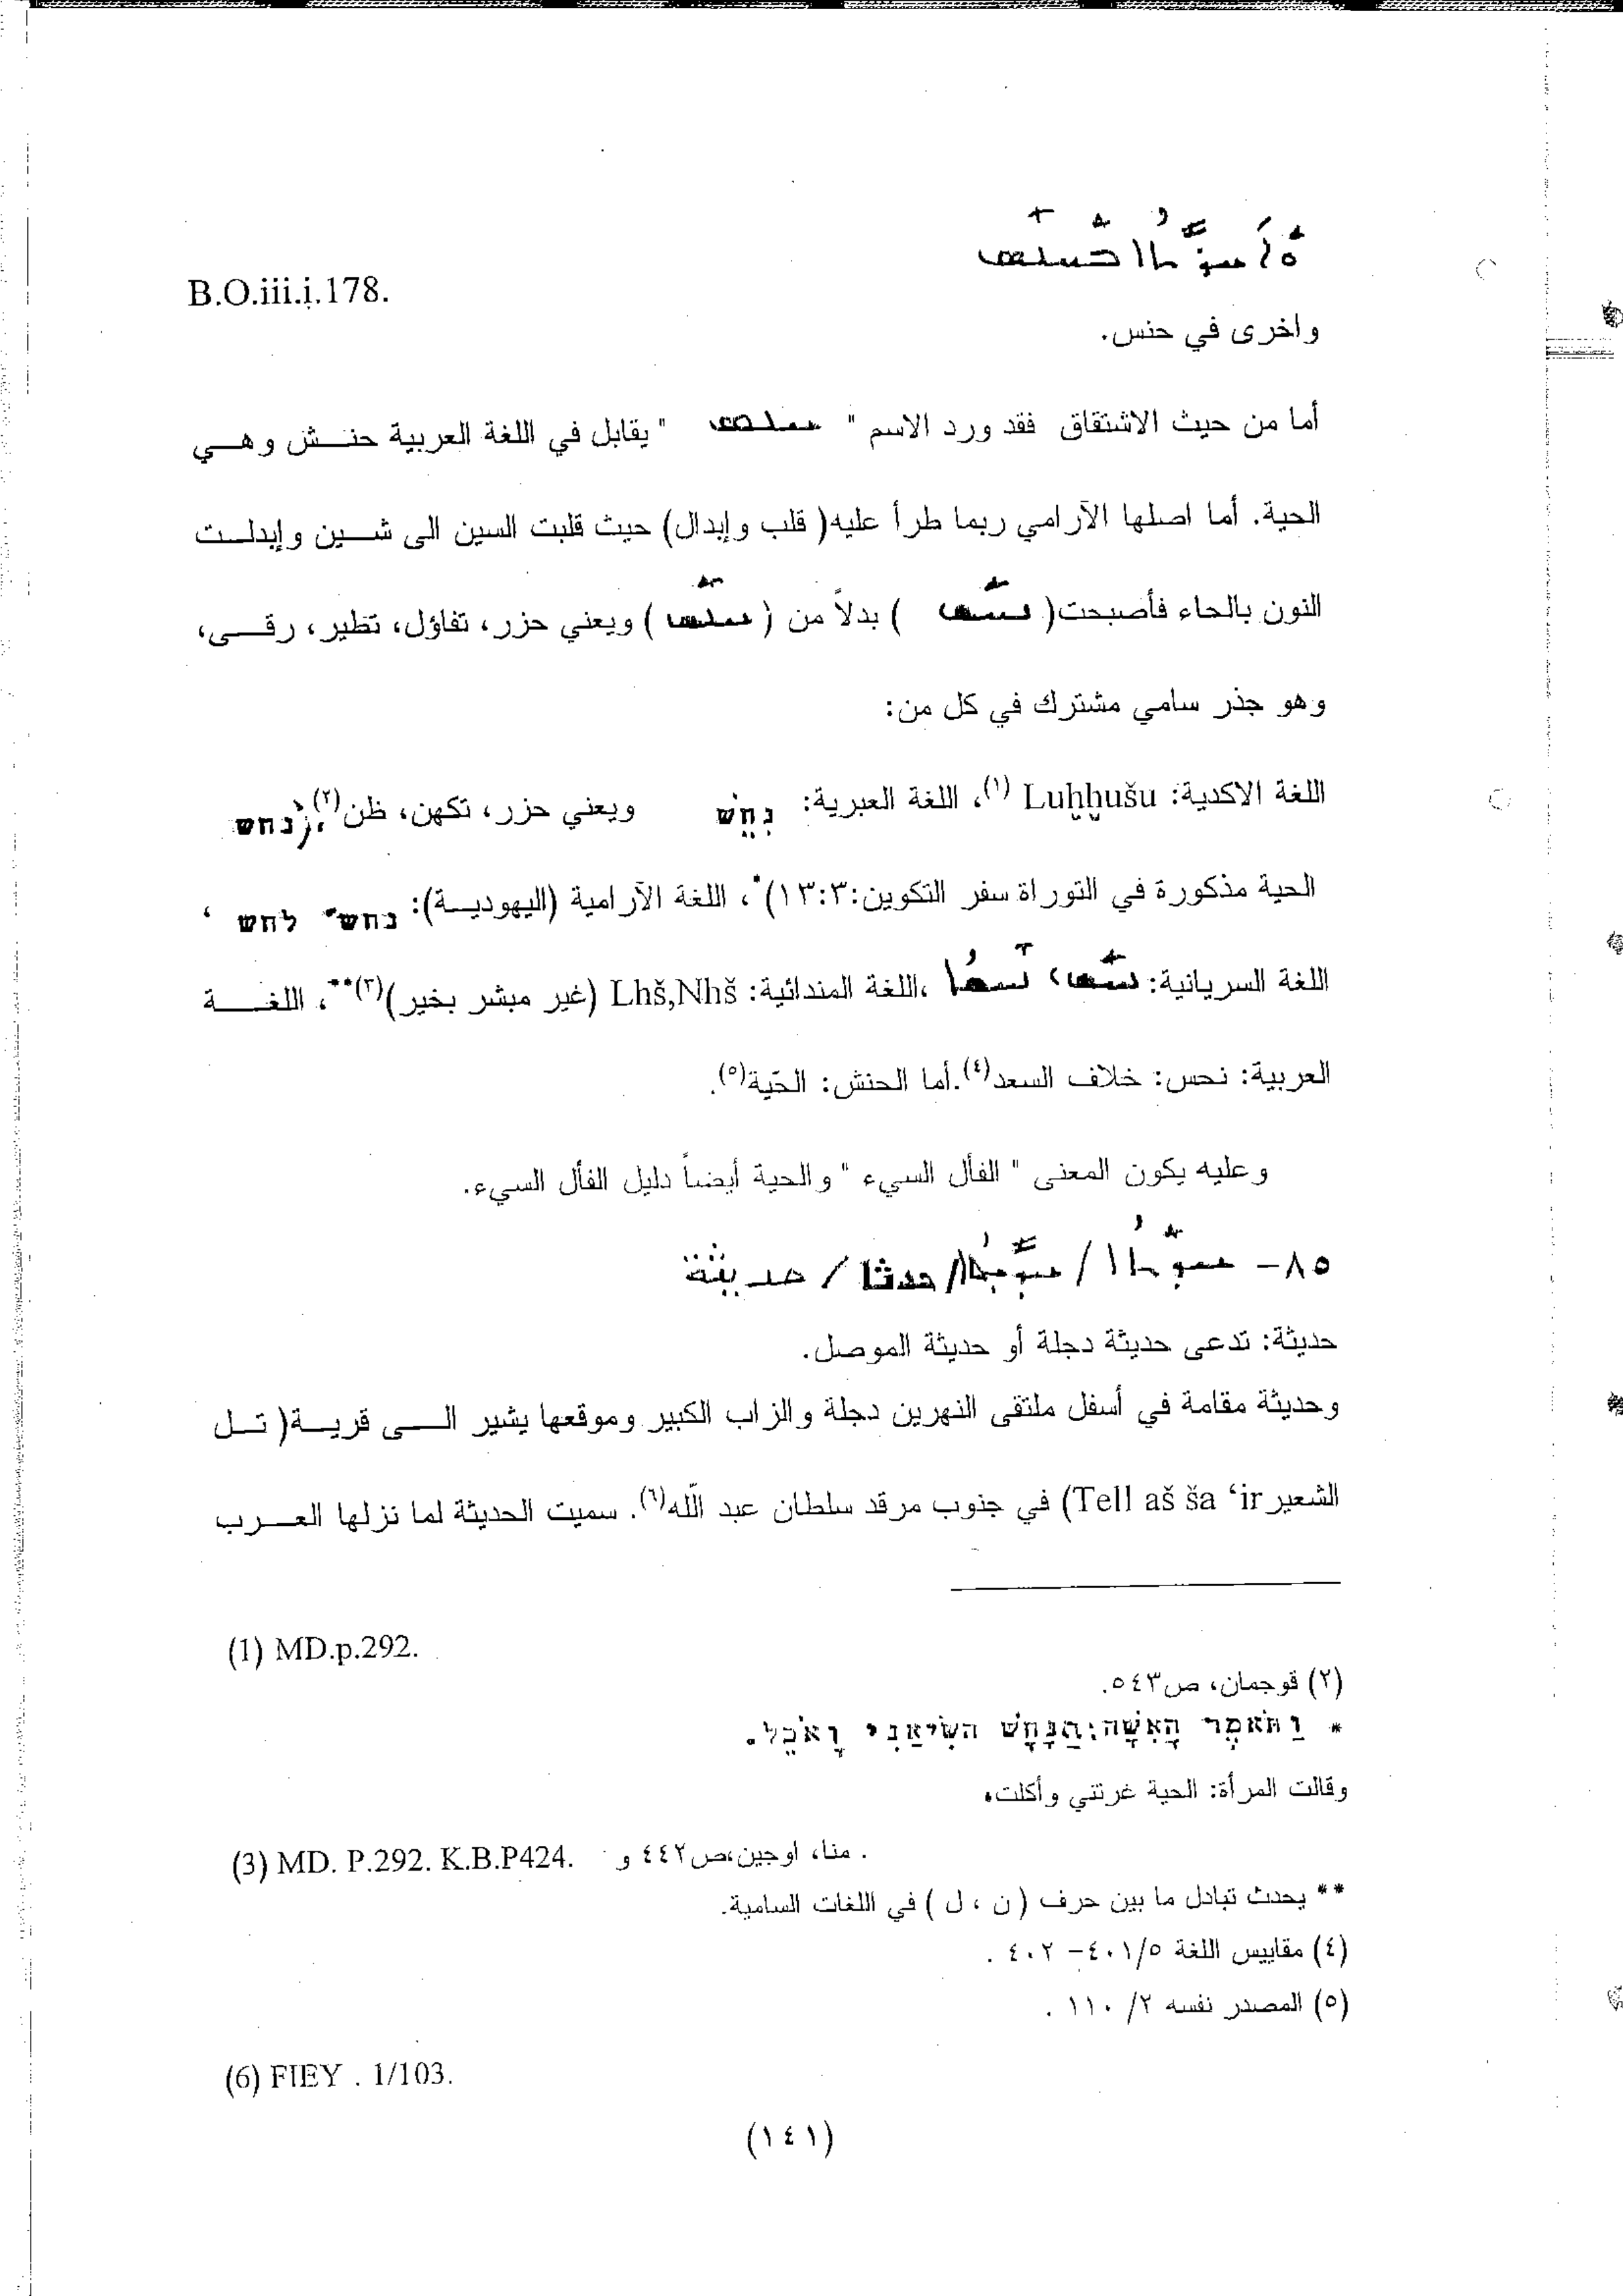 B.O.iii.i.178.
واخرى في حنس.
أما من حيث الاشتقاق فقد ورد الاسم " " يقابل في اللغة العربية حنش وهي
الحية. أما اصلها الآرامي ربما طرأ عليه( قلب وإبدال) حيث قلبت السين الى شين وإبدلت
النون بالحاء فأصبحت( ) بدلاً من ( ) ويعني حزر، تفاؤل، تطير، رقى،
وهو جذر سامي مشترك في كل من:
اللغة الاكدية: Luḫḫušu (١)، اللغة العبرية: נחש ويعني حزر، تكهن، ظن(٢)، נחש
الحية مذكورة في التوراة سفر التكوين:١٣:٣)*، اللغة الآرامية (اليهودية): נחש، לחש ،
اللغة السريانية: ،اللغة المندائية: Lhš,Nhš (غير مبشر بخير)(٣)**، اللغة
العربية: نحس: خلاف السعد(٤).أما الحنش: الحّية(٥).
وعليه يكون المعنى " الفأل السيء " والحية أيضاً دليل الفأل السيء.
٨٥- / / حدثا / حديثة
حديثة: تدعى حديثة دجلة أو حديثة الموصل.
وحديثة مقامة في أسفل ملتقى النهرين دجلة والزاب الكبير وموقعها يشير الى قرية( تل
الشعير Tell aš ša ‘ir) في جنوب مرقد سلطان عبد اللّه(٦). سميت الحديثة لما نزلها العرب
(1) MD.p.292.
(٢) قوجمان، ص٥٤٣.
* וַתֹּאמֶר הָאִשָּׁה:הַנָּחָשׁ השִּׁיאַנִי וָאֹכֵל.
وقالت المرأة: الحية غرتني وأكلت.
(3) MD. P.292. K.B.P424. منا، اوجين،ص٤٤٢ و .
** يحدث تبادل ما بين حرف ( ن ، ل ) في اللغات السامية.
(٤) مقاييس اللغة ٤٠١/٥- ٤٠٢ .
(٥) المصدر نفسه ٢/ ١١٠ .
(6) FIEY . 1/103.
(١٤١)